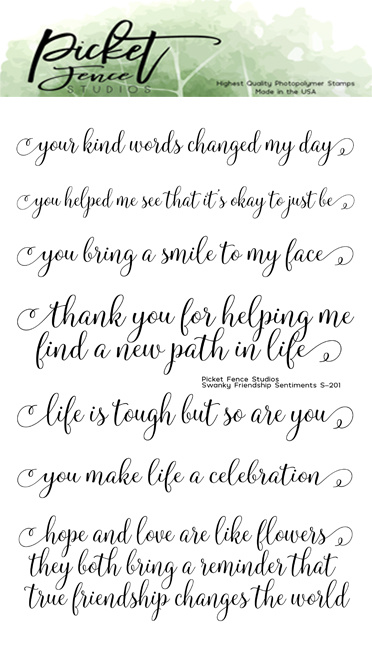 Picket
Fence
STUDIOS
Highest Quality Photopolymer Stamps
Made in the USA
your kind words changed my day
you helped me see that it's okay to just be
you bring a smile to my face
thank you for helping me
find a new path in life
Picket Fence Studios
Swanky Friendship Sentiments S-201
life is tough but so are you
you make life a celebration
hope and love are like flowers
they both bring a reminder that
true friendship changes the world